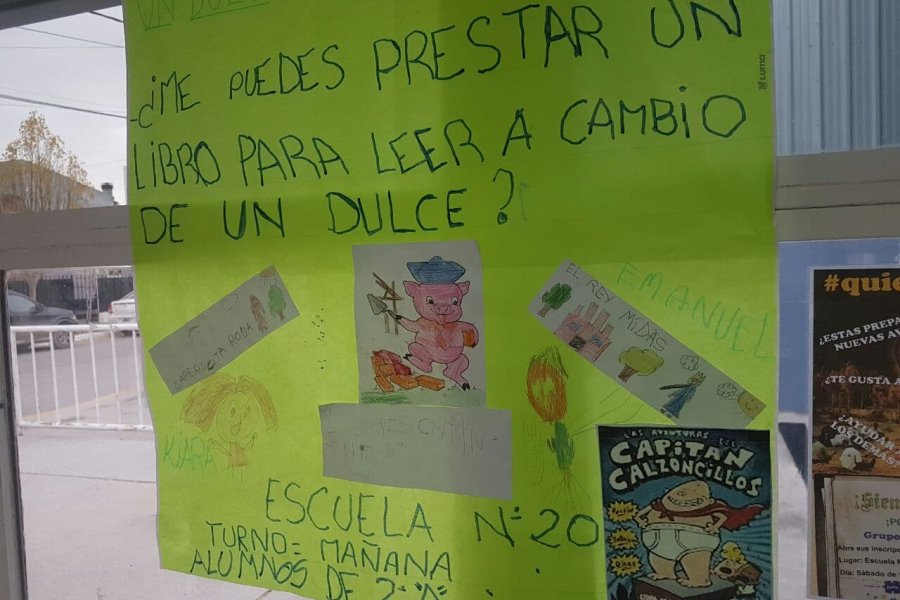 UN DULCE
-¿ME PUEDES PRESTAR UN
LIBRO PARA LEER A CAMBIO
DE UN DULCE?
Luma
CAPERUCITA ROJA
EL REY MIDAS
EMANUEL
KIARA
LAS AVENTURAS DEL
CAPITÁN
CALZONCILLOS
ESCUELA Nº 20
TURNO= MAÑANA
ALUMNOS DE 2º "A"
#quie
¿ESTAS PREPA
NUEVAS AV
¿TE GUSTA A
¡AYUDAR
LOS DEMÁS
¡Siem
¡P
Grupo
Abre sus inscripc
Lugar: Escuela N
Día: Sábado de